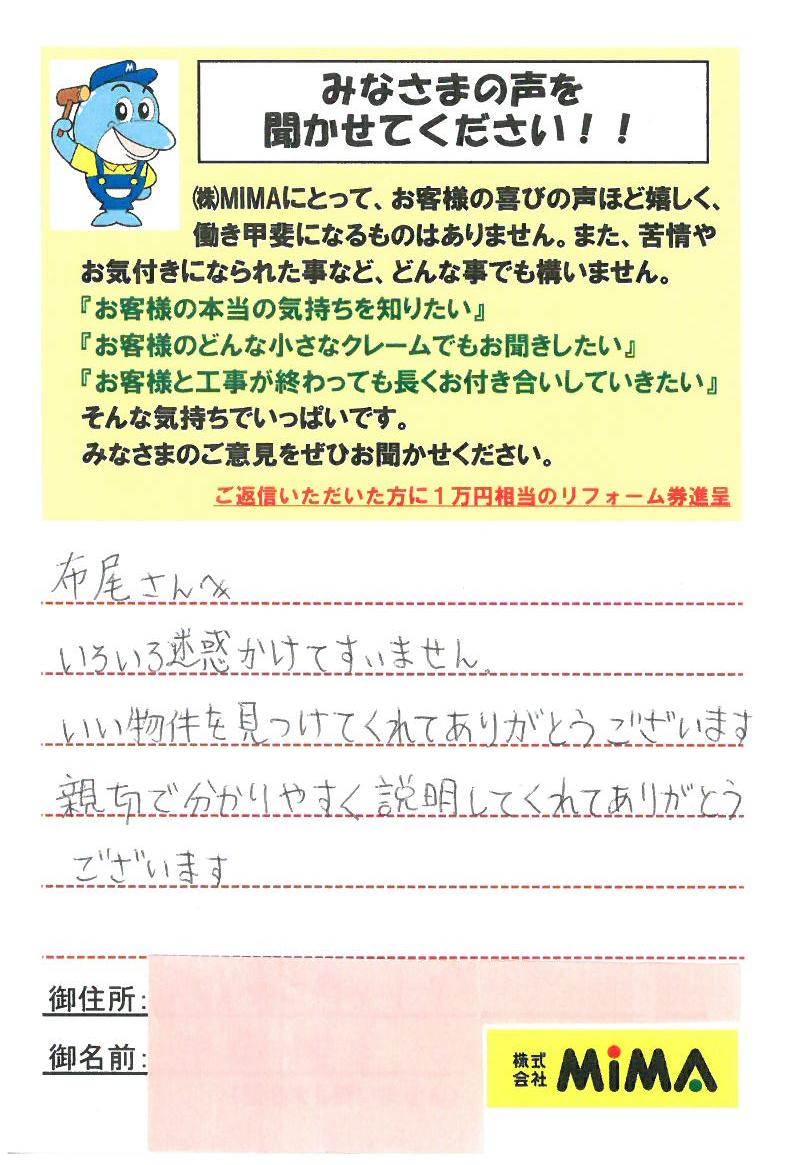 みなさまの声を
聞かせてください！！
㈱MIMAにとって、お客様の喜びの声ほど嬉しく、
働き甲斐になるものはありません。また、苦情や
お気付きになられた事など、どんな事でも構いません。
『お客様の本当の気持ちを知りたい』
『お客様のどんな小さなクレームでもお聞きしたい』
『お客様と工事が終わっても長くお付き合いしていきたい』
そんな気持ちでいっぱいです。
みなさまのご意見をぜひお聞かせください。
ご返信いただいた方に１万円相当のリフォーム券進呈
布尾さんへ
いろいろ迷惑かけてすいません。
いい物件を見つけてくれてありがとうございます
親切で分かりやすく説明してくれてありがとう
ございます
御住所：
御名前：
株式会社 MiMA
M